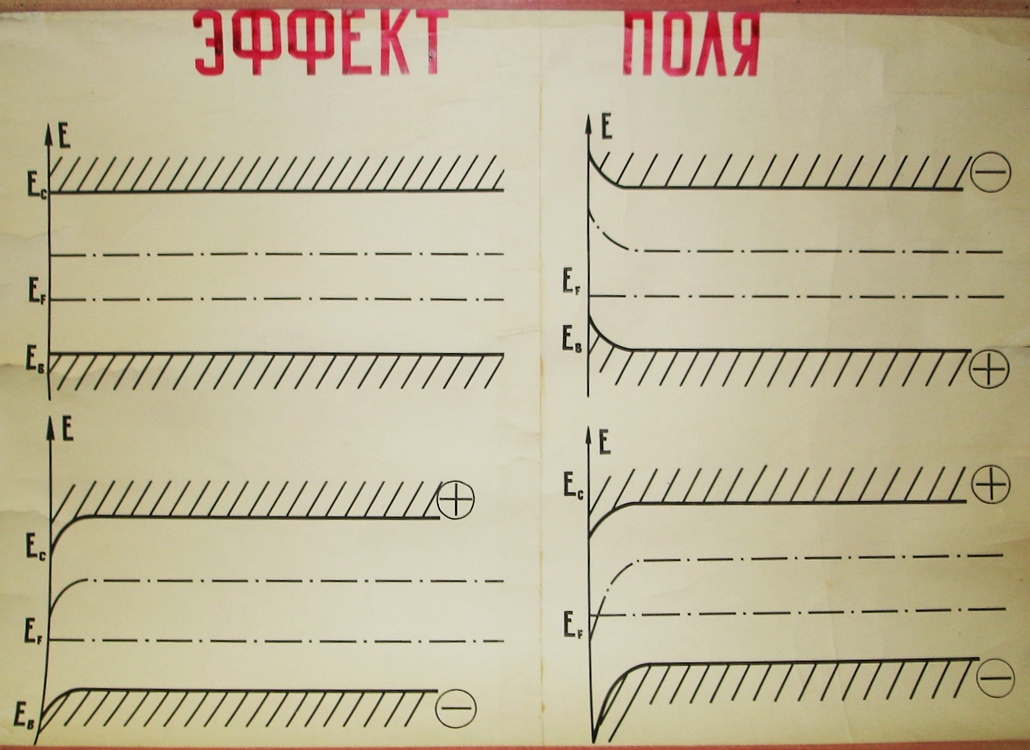 ЭФФЕКТ ПОЛЯ
E
Ec
EF
EB
E
EF
EB
−
+
E
Ec
EF
EB
+
−
E
Ec
EF
+
−